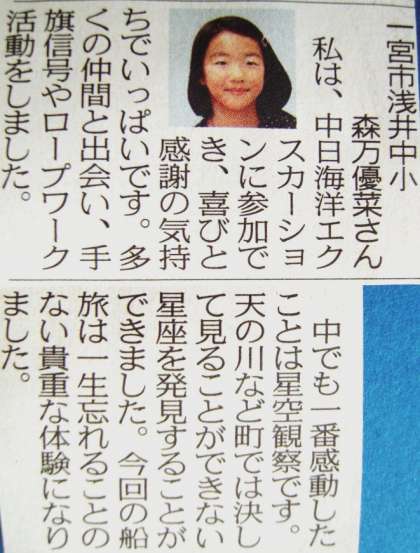 一宮市浅井中小
森万優菜さん
私は、中日海洋エク
スカーショ
ンに参加で
き、喜びと
感謝の気持
ちでいっぱいです。多
くの仲間と出会い、手
旗信号やロープワーク
活動をしました。
中でも一番感動した
ことは星空観察です。
天の川など町では決し
て見ることができない
星座を発見することが
できました。今回の船
旅は一生忘れることの
ない貴重な体験になり
ました。